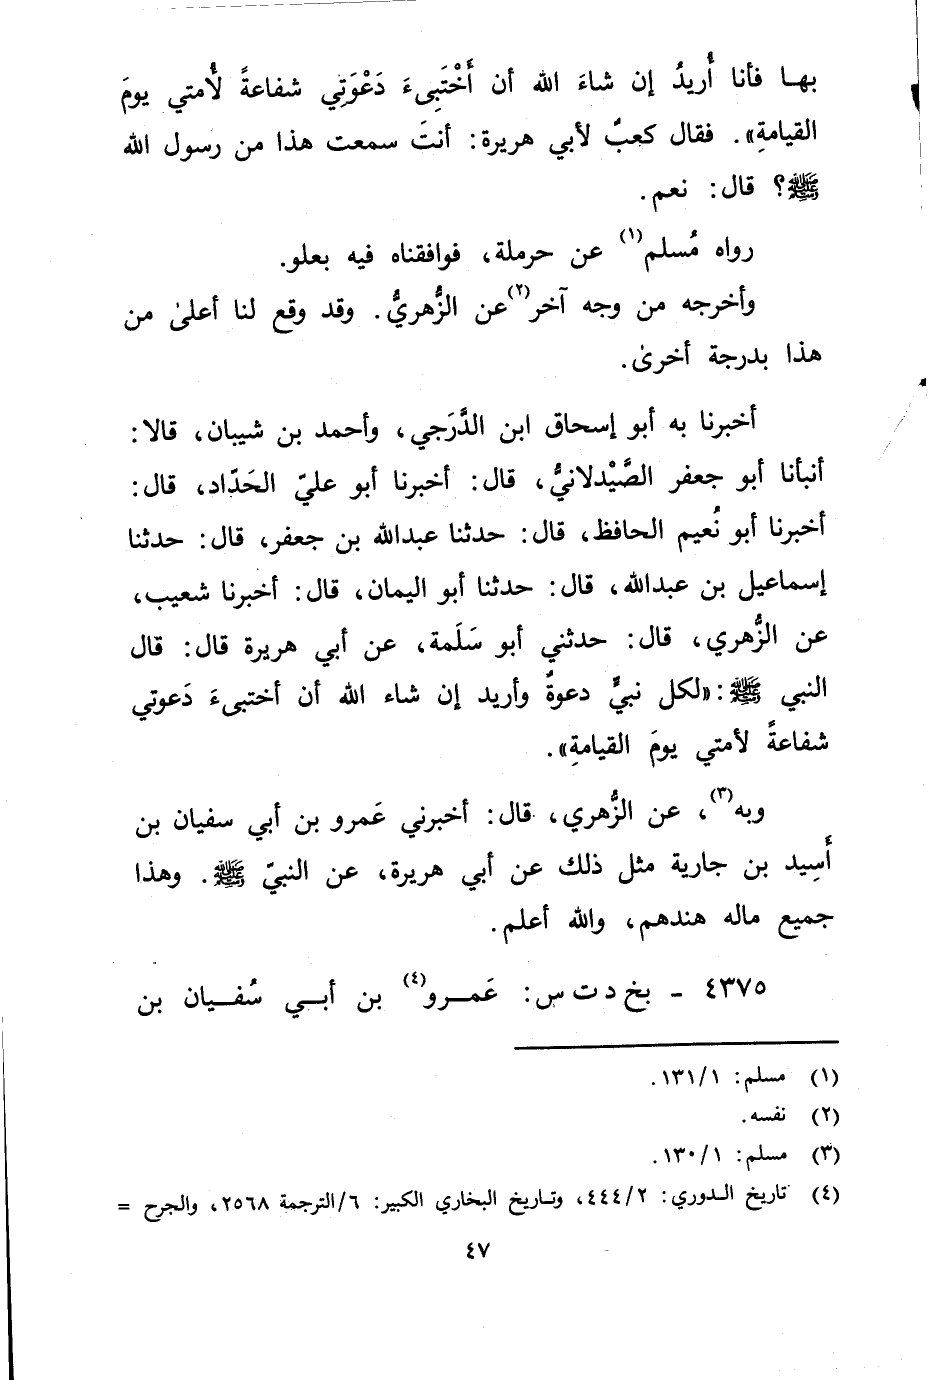 بهـا فأنا أُريدُ إن شاءَ الله أن أَخْتَبِىءَ دَعْوَتِي شفاعةً لأُمتي يومَ
القيامةِ». فقال كعبٌ لأبي هريرة: أنتَ سمعت هذا من رسول الله
ﷺ؟ قال: نعم.
رواه مُسلم(١) عن حرملة، فوافقناه فيه بعلو.
وأخرجه من وجه آخر(٢)عن الزُّهريُّ. وقد وقع لنا أعلىٰ من
هذا بدرجة أخرىٰ.
أخبرنا به أبو إسحاق ابن الدَّرَجي، وأحمد بن شيبان، قالا:
أنبأنا أبو جعفر الصَّيْدلانيُّ، قال: أخبرنا أبو عليّ الحَدّاد، قال:
أخبرنا أبو نُعيم الحافظ، قال: حدثنا عبدالله بن جعفر، قال: حدثنا
إسماعيل بن عبدالله، قال: حدثنا أبو اليمان، قال: أخبرنا شعيب،
عن الزُّهري، قال: حدثني أبو سَلَمة، عن أبي هريرة قال: قال
النبي ﷺ: «لكل نبيٍّ دعوةٌ وأريد إن شاء الله أن أختبىءَ دَعوتي
شفاعةً لأمتي يومَ القيامةِ».
وبه(٣)، عن الزُّهري، قال: أخبرني عَمرو بن أبي سفيان بن
أَسِيد بن جارية مثل ذلك عن أبي هريرة، عن النبيّ ﷺ. وهذا
جميع ماله هندهم، والله أعلم.
٤٣٧٥ ـ بخ د ت س: عَمـــرو(٤) بن أبـــي سُفـــيان بن
(١) مسلم: ١٣١/١.
(٢) نفسه.
(٣) مسلم: ١٣٠/١.
(٤) تاريخ الـدوري: ٤٤٤/٢، وتـاريخ البخاري الكبير: ٦/الترجمة ٢٥٦٨، والجرح =
٤٧